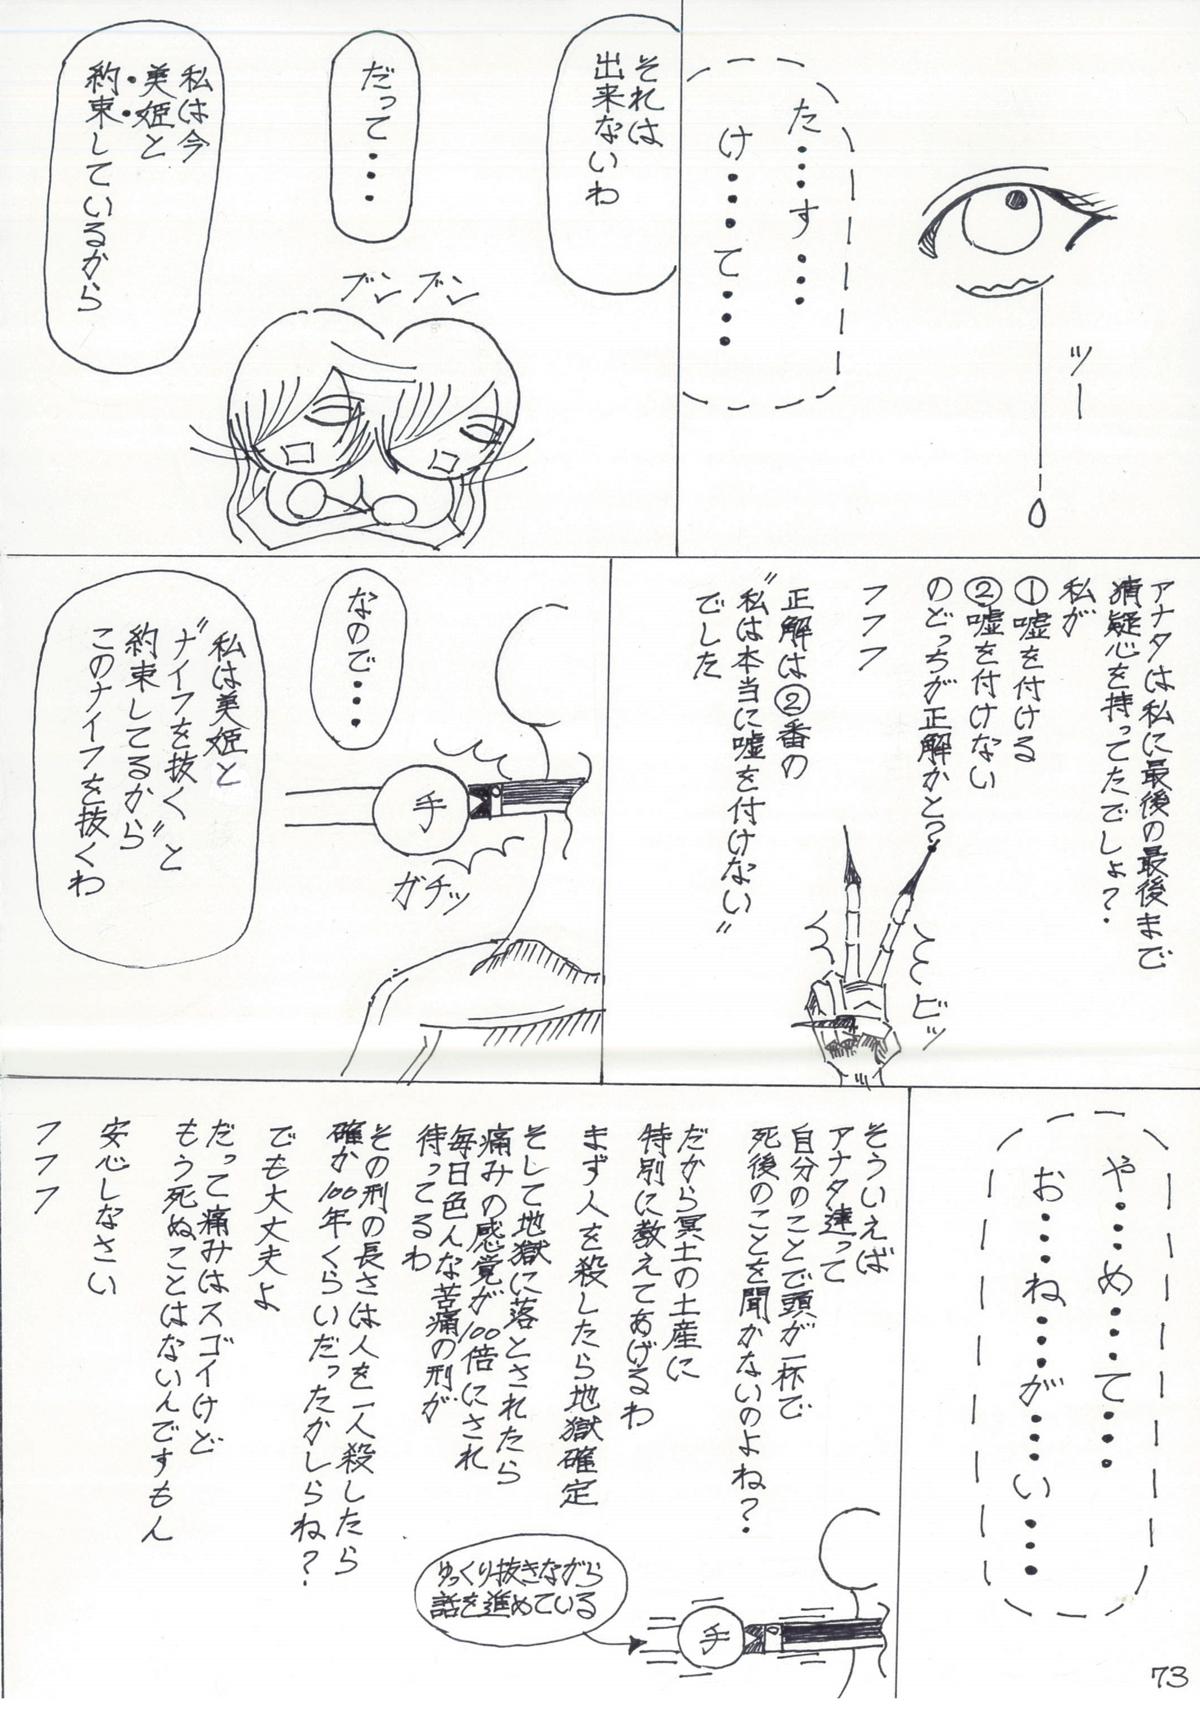 ツー
た・・・・す・・・・
け・・・・て・・・・
それは
出来ないわ
だって・・・・
私は今
美姫と
約束しているから
ブンブン
アナタは私に最後の最後まで
猜疑心を持ってたでしょ?
私が
①嘘を付ける
②嘘を付けない
のどっちが正解かと?
フフフ
正解は②番の
〝私は本当に嘘を付けない〟
でした
ビッ
なので・・・・
手
ガチッ
私は美姫と
〝ナイフを抜く〟と
約束してるから
このナイフを抜くわ
や・・・・め・・・・て・・・・
お・・・・ね・・・・が・・・・い・・・・
そういえば
アナタ達って
自分のことで頭が一杯で
死後のことを聞かないのよね?
だから冥土の土産に
特別に教えてあげるわ
まず人を殺したら地獄確定
そして地獄に落とされたら
痛みの感覚が100倍にされ
毎日色んな苦痛の刑が
待ってるわ
その刑の長さは人を一人殺したら
確か100年くらいだったかしらね?
でも大丈夫よ
だって痛みはスゴイけど
もう死ぬことはないんですもん
安心しなさい
フフフ
ゆっくり抜きながら
話を進めている
手
73